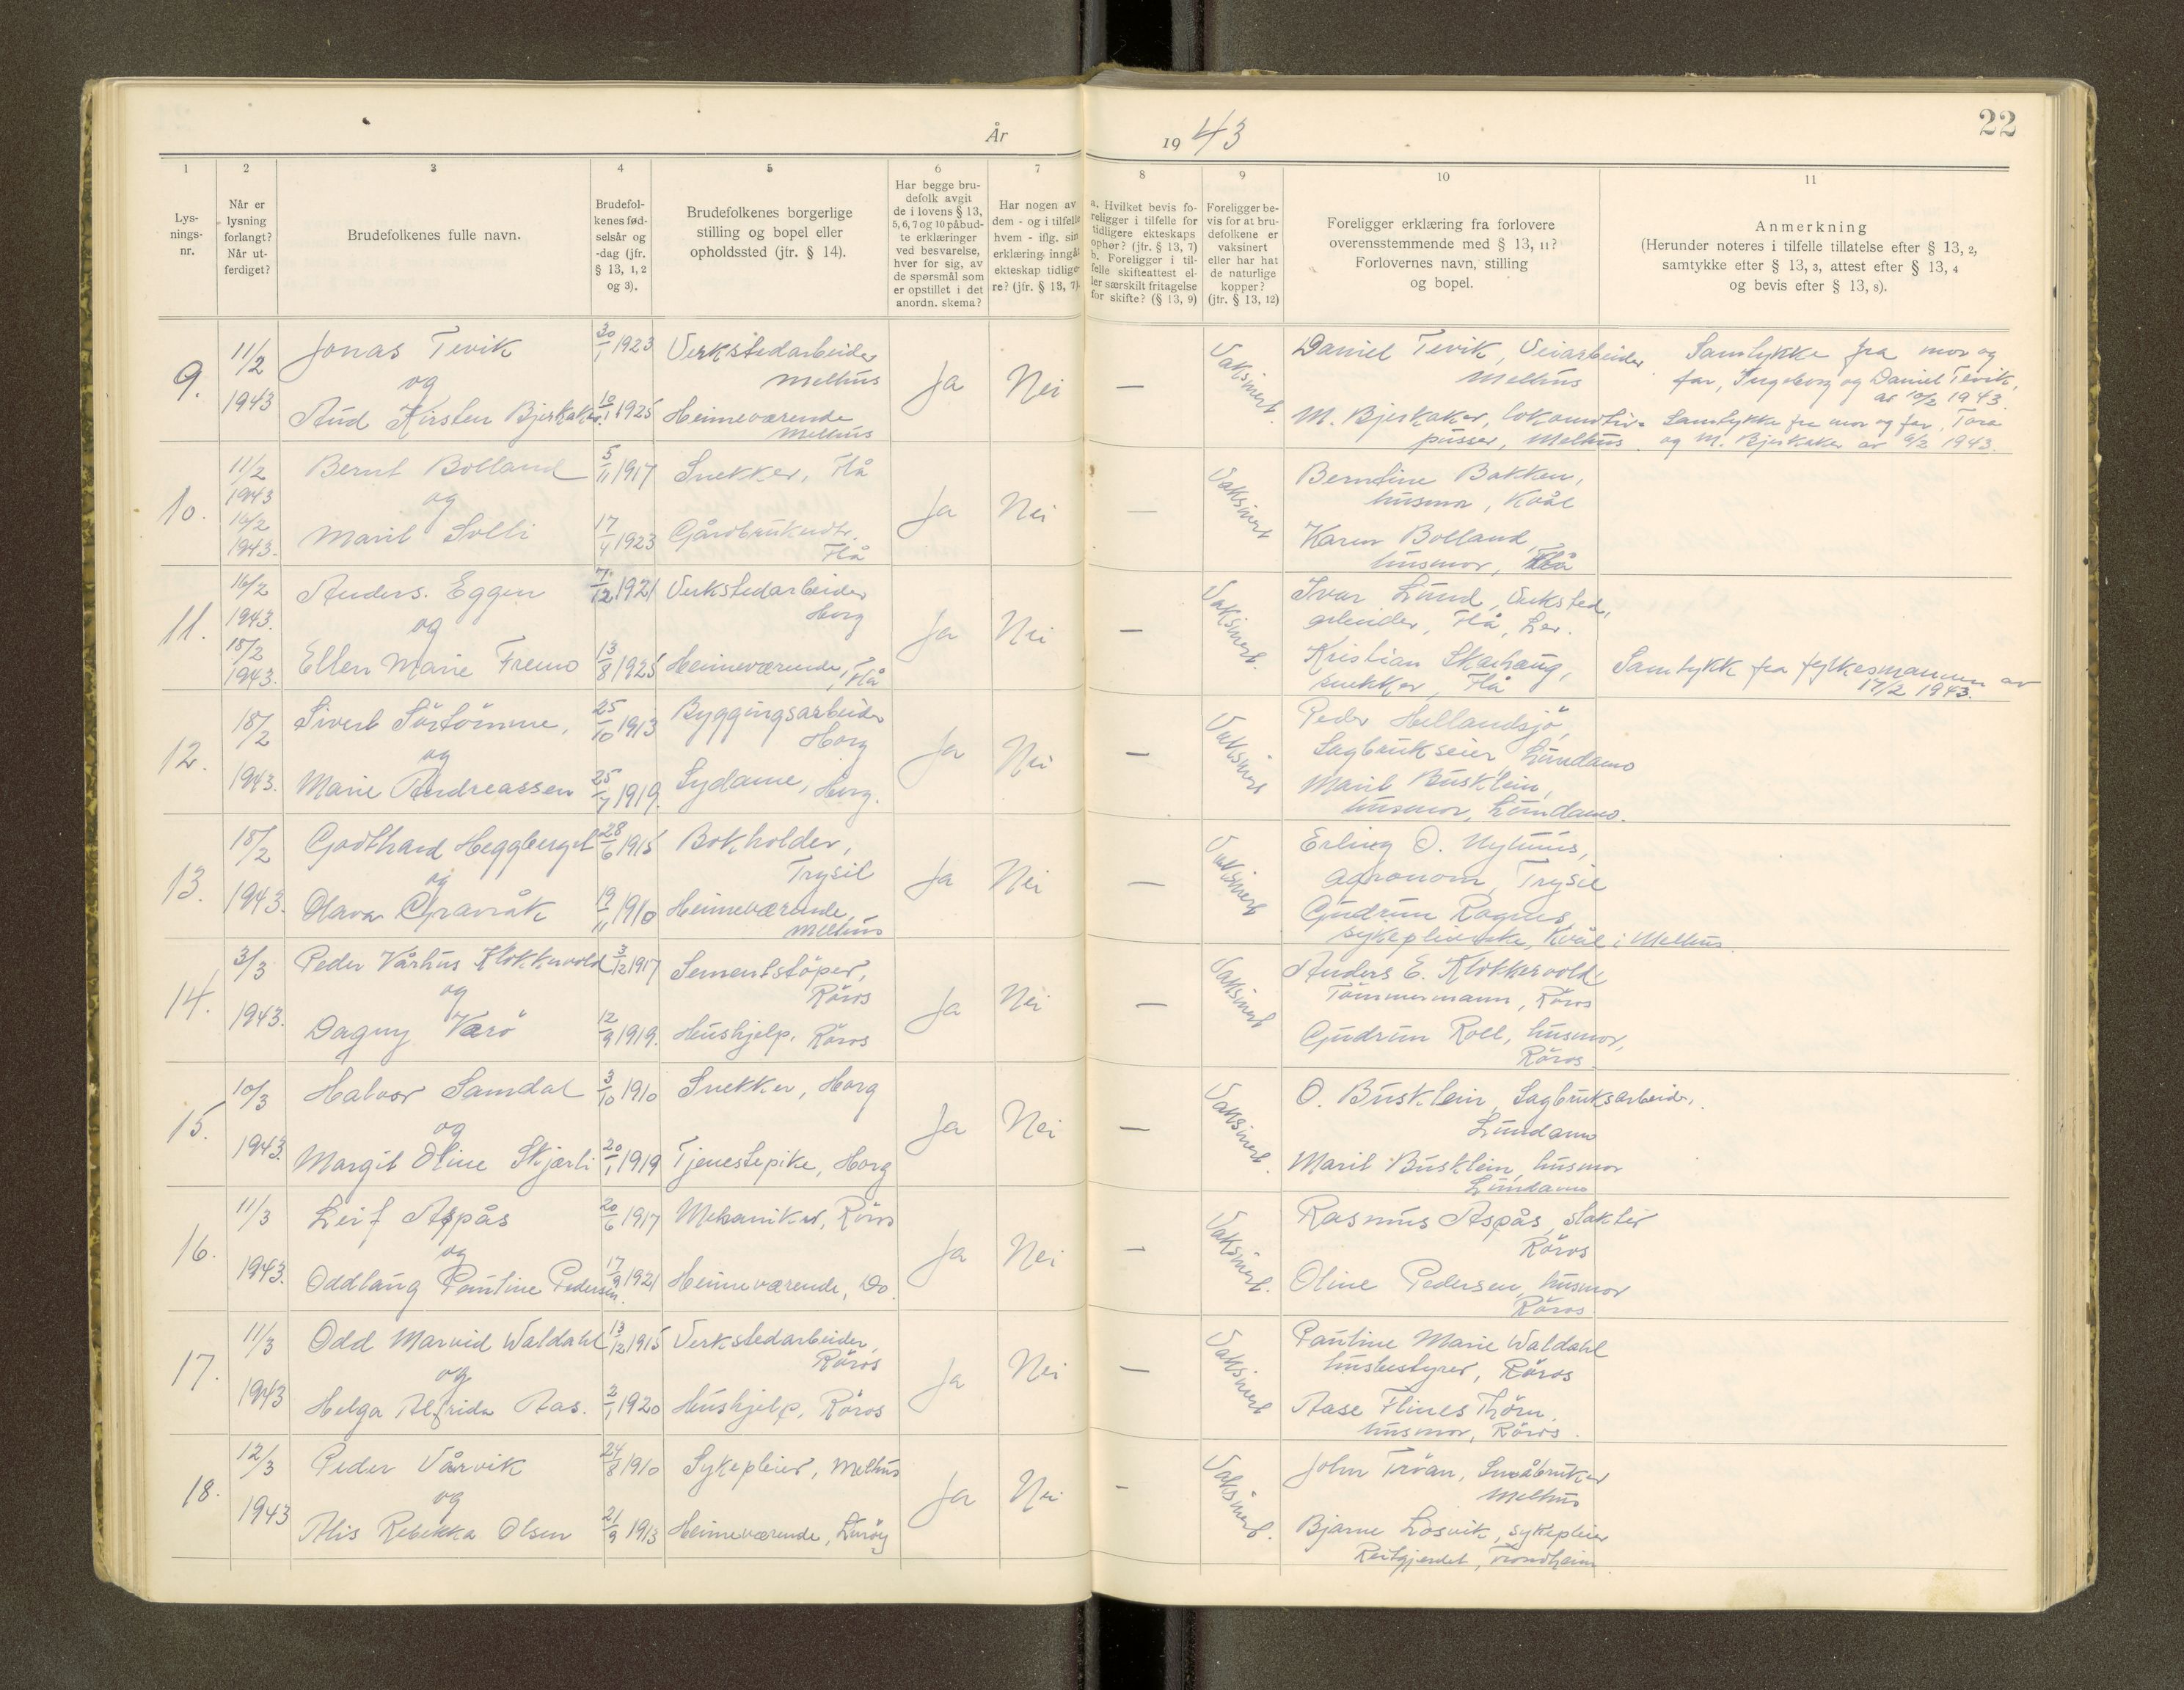 22
År 1943
1
2
3
4
5
6
7
8
9
10
11
Lys-
nings-
nr.
Når er
lysning
forlangt?
Når ut-
ferdiget?
Brudefolkenes fulle navn.
Brudefol-
kenes fød-
selsår og
-dag (jfr.
§ 13, 1, 2
og 3).
Brudefolkenes borgerlige
stilling og bopel eller
opholdssted (jfr. § 14).
Har begge bru-
defolk avgit
de i lovens § 13,
5, 6, 7 og 10 påbud-
te erklæringer
ved besvarelse,
hver for sig, av
de spørsmål som
er opstillet i det
anordn. skema?
Har nogen av
dem - og i tilfelle
hvem - iflg. sin
erklæring inngått
ekteskap tidlige-
re? (jfr. § 13, 7).
a. Hvilket bevis fo-
religger i tilfelle for
tidligere ekteskaps
ophør? (jfr. § 13, 7)
b. Foreligger i til-
felle skifteattest el-
ler særskilt fritagelse
for skifte? (§ 13, 9)
Foreligger be-
vis for at bru-
defolkene er
vaksinert
eller har hat
de naturlige
kopper?
(jfr. § 13, 12)
Foreligger erklæring fra forlovere
overensstemmende med § 13, 11?
Forlovernes navn, stilling
og bopel.
Anmerkning
(Herunder noteres i tilfelle tillatelse efter § 13, 2,
samtykke efter § 13, 3, attest efter § 13, 4
og bevis efter § 13, 8).
9. 11/2 1943
Jonas Tevik 30/1 1923 Verkstedarbeider
Melhus
og
Aud Kirsten Bjerkaker 10/1 1925 Heimeværende
Melhus
Ja Nei — Vaksinert.
Daniel Tevik, Veiarbeider
Melhus
M. Bjerkaker, lokomotiv-
pusser, Melhus.
Samtykke fra mor og
far, Ingeborg og Daniel Tevik,
av 10/2 1943.
Samtykke fra mor og far, Tora
og M. Bjerkaker av 9/2 1943.
10. 11/2 1943 16/2 1943.
Bernt Bolland 5/11 1917 Snekker, Flå
og
Marit Solli 17/4 1923 Gårdbrukerdtr.
Flå
Ja Nei — Vaksinert
Berntine Bakken,
husmor, Kvål
Karen Bolland,
husmor, Flå
11. 16/2 1943. 18/2 1943.
Anders. Eggen 7/12 1921 Verkstedarbeider
Horg
og
Ellen Marie Fremo 13/8 1925 Heimeværende, Flå
Ja Nei — Vaksinert.
Ivar Lund, Verksted,
arbeider, Flå, Ler.
Kristian Skarhaug,
snekker, Flå
Samtykk fra fylkesmannen av
17/2 1943.
12. 18/2 1943.
Sivert Sörtömme, 25/10 1913 Byggingsarbeider
Horg
og
Marie Andreassen 25/7 1919. Sydame, Horg.
Ja Nei — Vaksinert
Peder Hellandsjö,
Sagbrukseier, Lundamo
Marit Busklein,
husmor, Lundamo.
13. 18/2 1943.
Godthard Heggberget 28/6 1915 Bokholder,
Trysil
og
Olava Gravråk 19/11 1910 Heimeværende,
Melhus
Ja Nei — Vaksinert
Erling O. Nyhuus,
agronom, Trysil
Gudrun Ragnes,
sykepleierske, Kvål i Melhus.
14. 3/3 1943.
Peder Vårhus Klokkervold 3/12 1917 Sementstöper,
Röros
og
Dagny Værö 12/9 1919. Hushjelp, Röros
Ja Nei — Vaksinert
Anders E. Klokkervold
Tömmermann, Röros
Gudrun Roll, husmor,
Röros
15. 10/3 1943.
Halvor Samdal 3/10 1910 Snekker, Horg
og
Margit Oline Skjærli 20/1 1919 Tjenestepike, Horg
Ja Nei — Vaksinert.
O. Busklein, Sagbruksarbeider,
Lundamo
Marit Busklein, husmor
Lundamo
16. 11/3 1943.
Leif Aspås 20/6 1917 Mekaniker, Röros
og
Oddlaug Pauline Pedersen. 17/9 1921 Heimeværende, Do.
Ja Nei — Vaksinert.
Rasmus Aspås, slakter
Röros
Oline Pedersen, husmor
Röros
17. 11/3 1943
Odd Marvid Waldahl 13/12 1915 Verkstedarbeider,
Röros
og
Helga Alfrida Aas. 2/1 1920 Hushjelp, Röros
Ja Nei — Vaksinert
Pauline Marie Waldahl
husbestyrer, Röros
Aase Flines Thörn,
husmor, Röros.
18. 12/3 1943
Peder Vårvik 24/8 1910 Sykepleier, Melhus
og
Alis Rebekka Olsen 21/9 1913 Heimeværende, Luröy
Ja Nei - Vaksinert.
John Tröan, Småbruker
Melhus
Bjarne Losvik, sykepleier
Reitgjerdet, Trondheim.